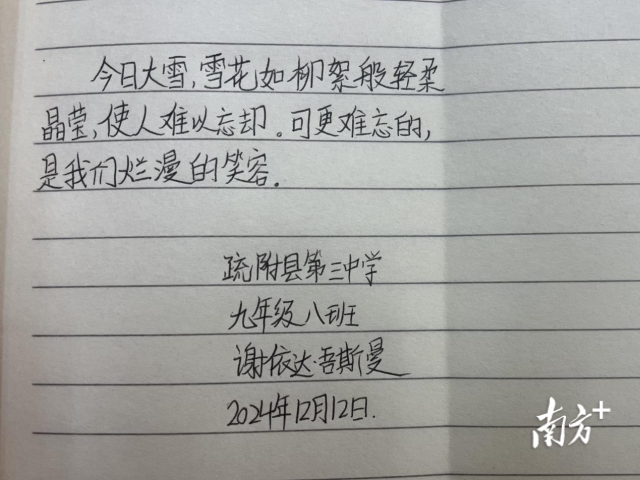 今日大雪,雪花如柳絮般轻柔
晶莹,使人难以忘却。可更难忘的,
是我们烂漫的笑容.
疏附县第三中学
九年级八班
谢依达·吾斯曼
2024年12月12日.
南方+